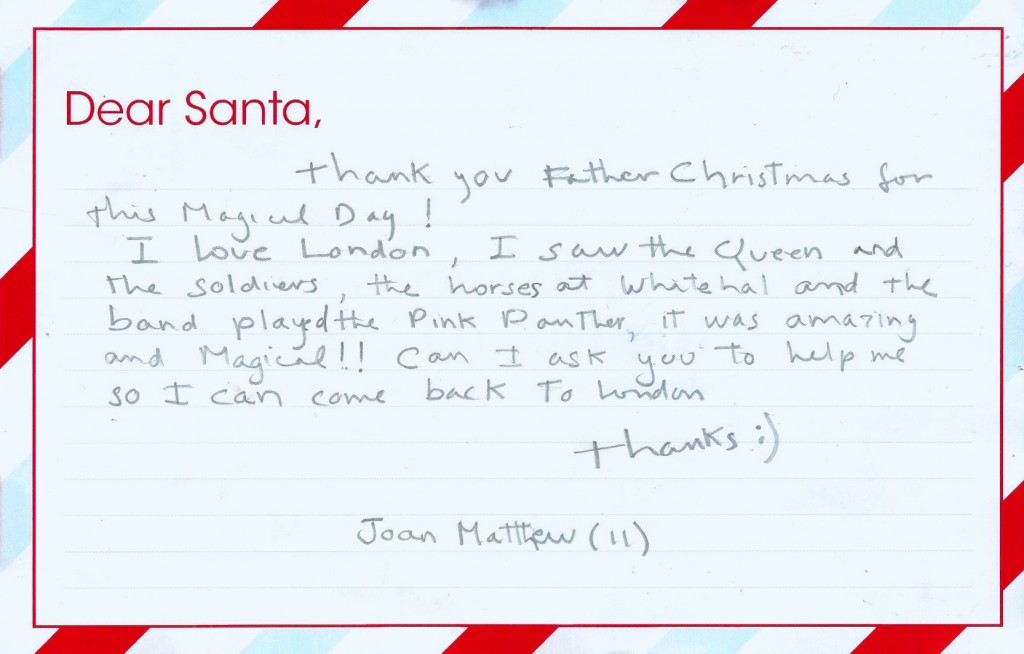 Dear Santa,
Thank you Father Christmas for
this Magical Day !
I love London, I saw the Queen and
the soldiers, the horses at Whitehal and the
band played the Pink Panther, it was amazing
and Magical!! Can I ask you to help me
so I can come back To london
thanks :)
Joan Matthew (11)